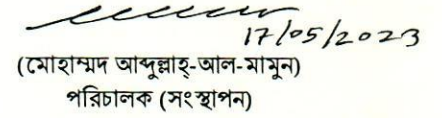 17/05/2023
(মোহাম্মদ আব্দুল্লাহ্-আল-মামুন)
পরিচালক (সংস্থাপন)